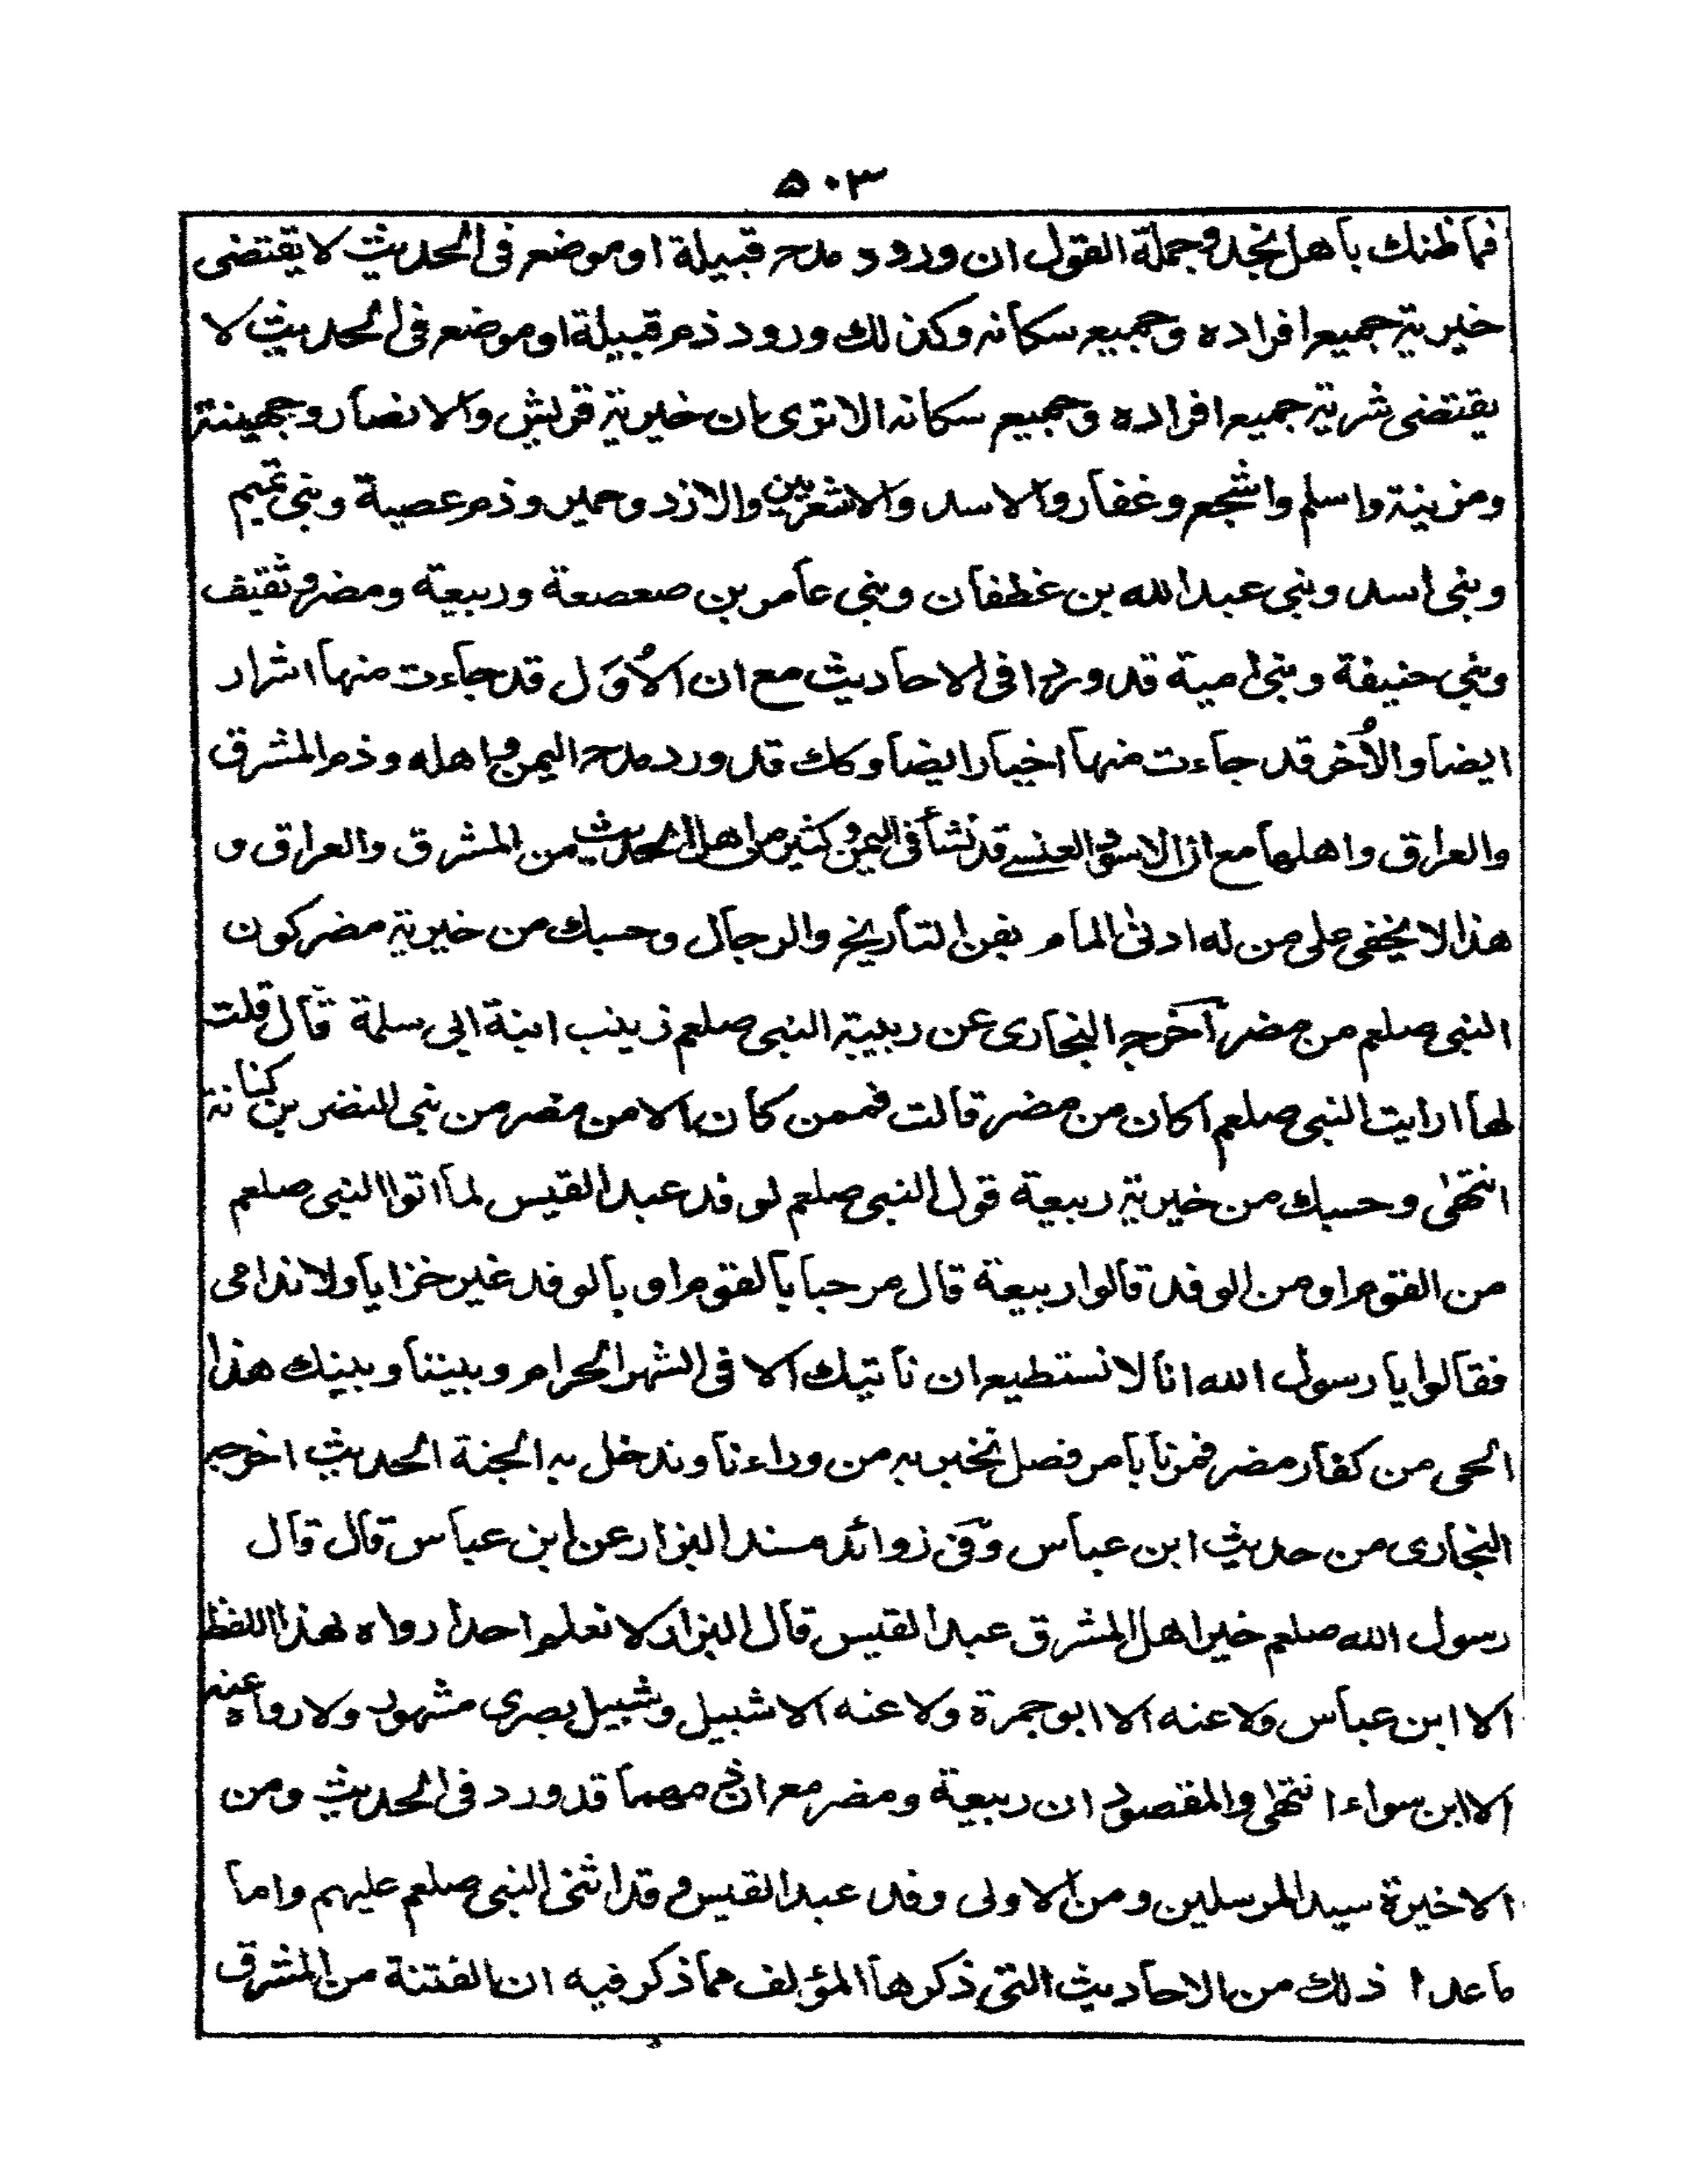 ٥٠٣
فما ظنك بأهل نجد وجملة القول ان ورود مدح قبيلة او موضع فى الحديث لا يقتضى
خيرية جميع افراده وجميع سكانه وكذلك ورود ذم قبيلة او موضع فى الحديث لا
يقتضى شرية جميع افراده وجميع سكانه الا ترى ان خيرية قريش والانصار وجهينة
ومزينة واسلم واشجع وغفار والاسد والاشعريين والازد وحمير وذم عصية وبنى تميم
وبنى اسد وبنى عبد الله بن غطفان وبنى عامر بن صعصعة وربيعة ومضر وثقيف
وبنى حنيفة وبنى امية قد وردا فى الاحاديث مع ان الاُوَل قد جاءت منها اشرار
ايضا والاُخر قد جاءت منها اخيار ايضا وكك قد ورد مدح اليمن واهله وذم المشرق
والعراق واهلها مع ان الاسود العنسے قد نشأ فى اليمن وكثير من اهل الحديث من المشرق والعراق و
هذا لا يخفى على من له ادنى المام بفن التاريخ والرجال وحسبك من خيرية مضر كون
النبى صلعم من مضر اخرج البخارى عن ربيبة النبى صلعم زينب ابنة ابى سلمة قال قلت
لها ارايت النبى صلعم اكان من مضر قالت فممن كان الا من مضر من بنى النضر بن كنانة
انتهى وحسبك من خيرية ربيعة قول النبى صلعم لوفد عبد القيس لما اتوا النبى صلعم
من القوم او من الوفد قالوا ربيعة قال مرحبا بالقوم او بالوفد غير خزايا ولا ندامى
فقالوا يا رسول الله انا لا نستطيع ان ناتيك الا فى الشهر الحرام وبيننا وبينك هذا
الحى من كفار مضر فمرنا بامر فصل نخبر به من وراءنا وندخل به الجنة الحديث اخرجه
البخارى من حديث ابن عباس وفى زوائد مسند البزار عن ابن عباس قال قال
رسول الله صلعم خير اهل المشرق عبد القيس قال البزار لا نعلم احدا رواه بهذا اللفظ
الا ابن عباس ولا عنه الا ابو جمرة ولا عنه الا شبيل وشبيل بصرى مشهور ولا رواه عنه
الا ابن سواء انتهى والمقصود ان ربيعة ومضر مع ان ذمهما قد ورد فى الحديث ومن
الاخيرة سيد المرسلين ومن الاولى وفد عبد القيس وقد اثنى النبى صلعم عليهم واما
ما عدا ذلك من الاحاديث التى ذكرها المؤلف مما ذكر فيه ان الفتنة من المشرق